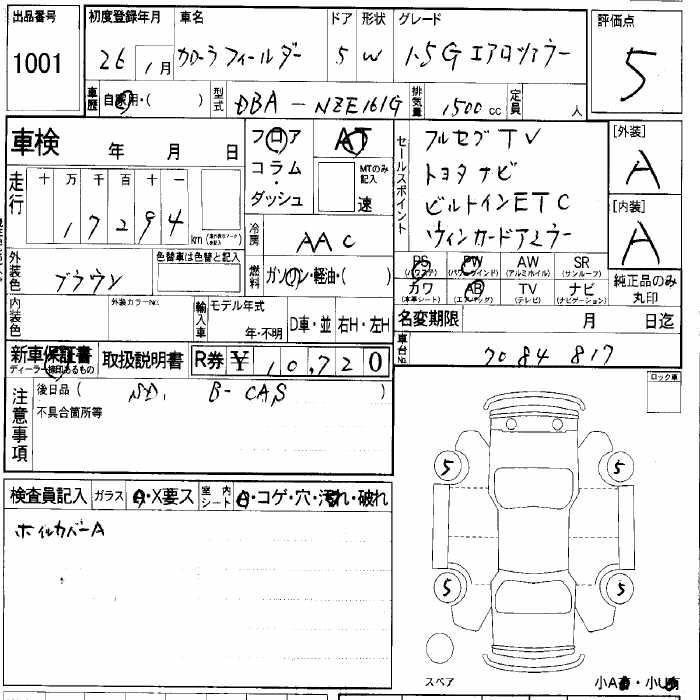 出品番号 初度登録年月 車名 ドア 形状 グレード 評価点
1001 26 1月 カローラ フィールダー 5 W 1.5G エアロツアラー 5
車歴 自家用・( ) 型式 DBA-NZE161G 排気量 1500cc 定員 人
車検 年 月 日
フロア AT
コラム・ MTのみ記入
ダッシュ 速
セールスポイント
フルセグTV
トヨタナビ
ビルトインETC
ウィンカードアミラー
[外装]
A
[内装]
A
走行 十 万 千 百 十 一
17294 km
冷房 AAC
外装色 ブラウン 色替車は色替と記入
燃料 ガソリン・軽油・( )
PS (パワステ) PW (パワーウインド) AW (アルミホイル) SR (サンルーフ)
カワ (本革シート) AB (エアバッグ) TV (テレビ) ナビ (ナビゲーション)
純正品のみ丸印
内装色 外装カラーNo.
輸入車 モデル年式 年・不明 D車・並 右H・左H
名変期限 月 日迄
新車保証書 取扱説明書 R券 ¥ 10,720
ディーラー捺印あるもの
車台No. 7084817
注意事項
後日品 ( SD, B-CAS )
不具合箇所等
ロック車
検査員記入 ガラス A・X要ス 室内シート A・コゲ・穴・汚れ・破れ
ホイルカバーA
5 5
5 5
スペア
小A・小U